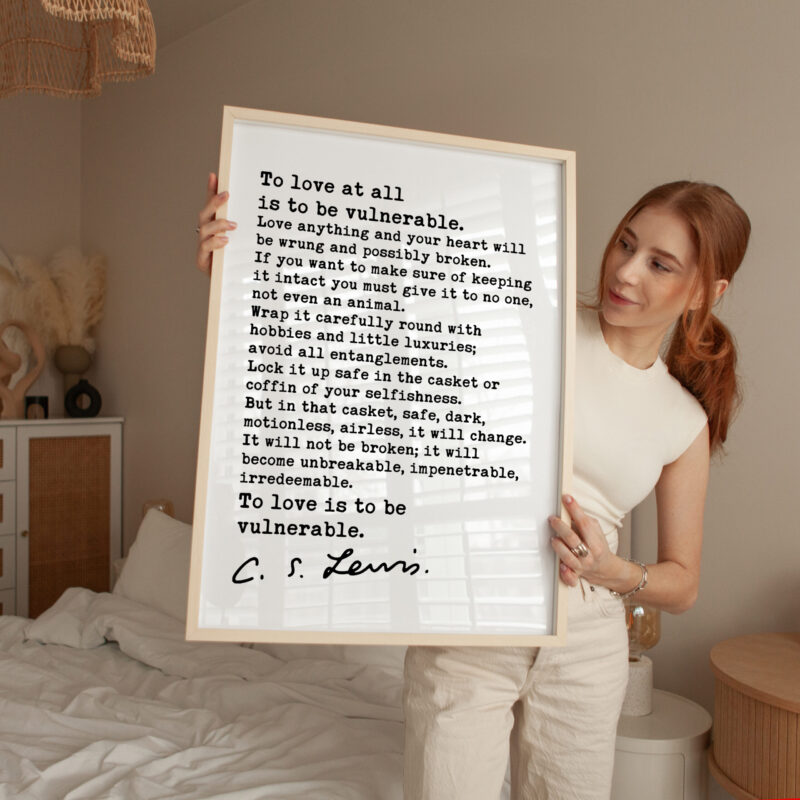 To love at all
is to be vulnerable.
Love anything and your heart will
be wrung and possibly broken.
If you want to make sure of keeping
it intact you must give it to no one,
not even an animal.
Wrap it carefully round with
hobbies and little luxuries;
avoid all entanglements.
Lock it up safe in the casket or
coffin of your selfishness.
But in that casket, safe, dark,
motionless, airless, it will change.
It will not be broken; it will
become unbreakable, impenetrable,
irredeemable.
To love is to be
vulnerable.
C. S. Lewis.